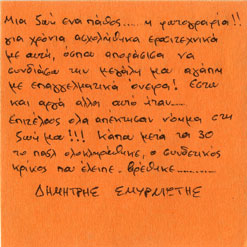 Μια ζωή ένα πάθος..... η φωτογραφία!!
για χρόνια ασχολήθηκα ερασιτεχνικά
με αυτή, ώσπου αποφάσισα να
συνδιάσω την μεγάλη μου αγάπη
με επαγγελματικά όνειρα! Έστω
και αργά αλλά αυτό ήταν....
Επιτέλους όλα απέκτησαν νόημα στη
ζωή μου!!! Κάπου μετά τα 30
το παζλ ολοκληρώθηκε, ο συνδετικός
κρίκος που έλειπε. βρέθηκε..........
ΔΗΜΗΤΡΗΣ ΣΜΥΡΛΙΩΤΗΣ